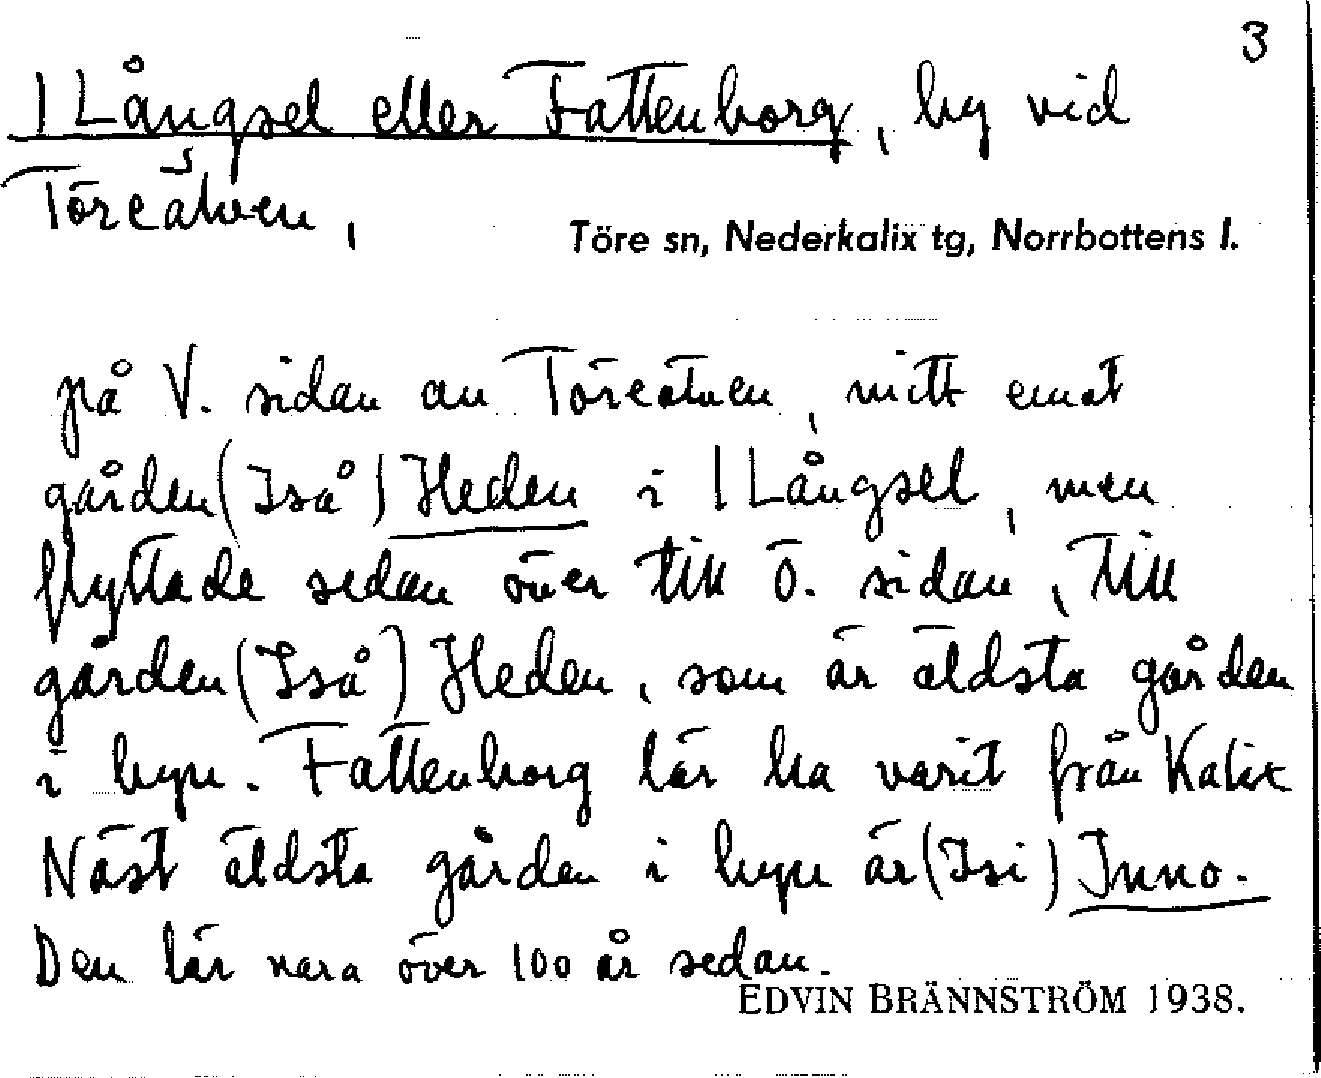 3
I Långsel eller Fattenborg, by vid
Töreälven,
Töre sn, Nederkalix tg, Norrbottens l.
på V. sidan av Töreälven, mitt emot
gården (Iså) Heden i I Långsel, men
flyttade sedan över till Ö. sidan, till
gården (Iså) Heden, som är äldsta gården
i byn. Fattenborg lär ha varit från Kalix
Näst äldsta gården i byn är (Isi) Inno.
Den lär vara över 100 år sedan.
EDVIN BRÄNNSTRÖM 1938.